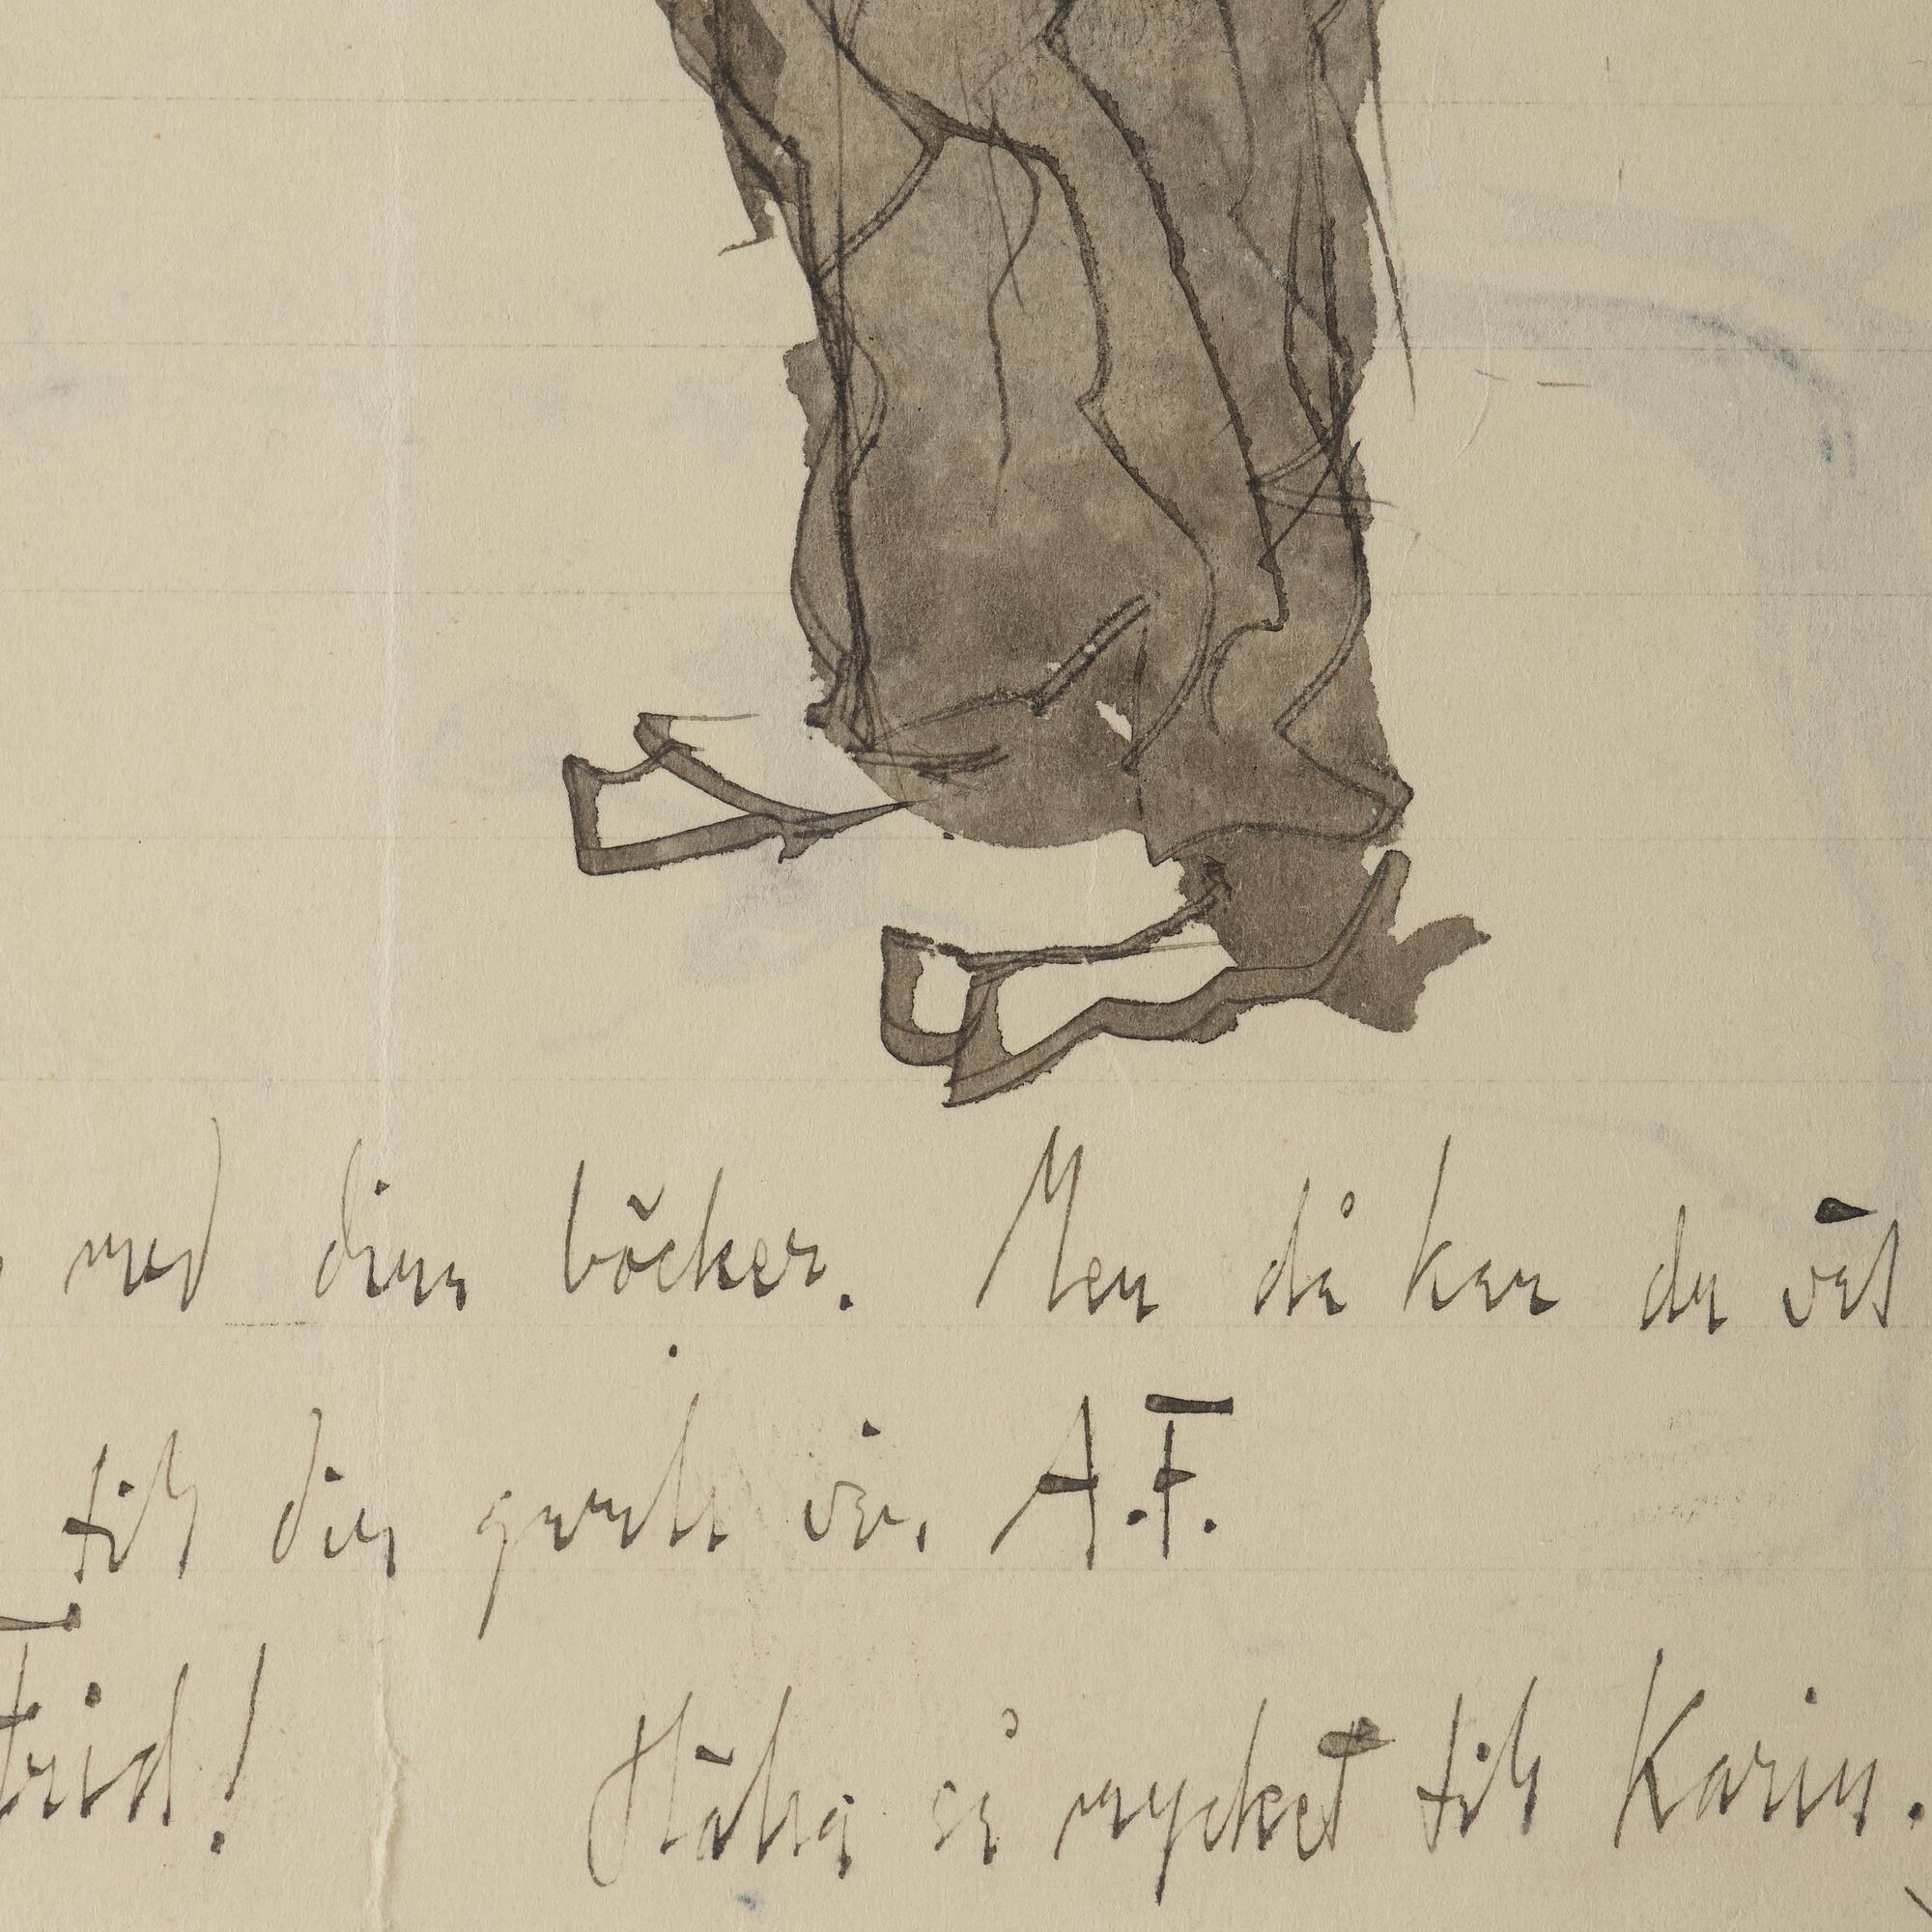 med dina böcker. Men då kan du väl
till din gamle vän A.F.
trid! Hälsa så mycket till Karin.